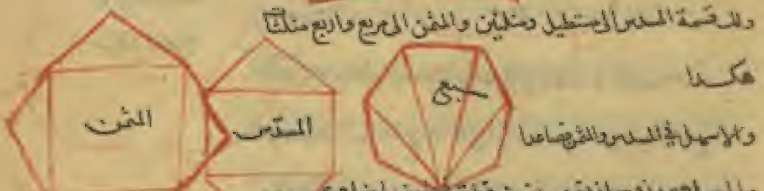 ولك قسمة المسدس الى مستطيل ومثلثين والمثمن الى مربع واربع مثلثات
هكذا
سبع
المسدس
المثمن
والاسهل في المسدس والمثمن فصاعدا